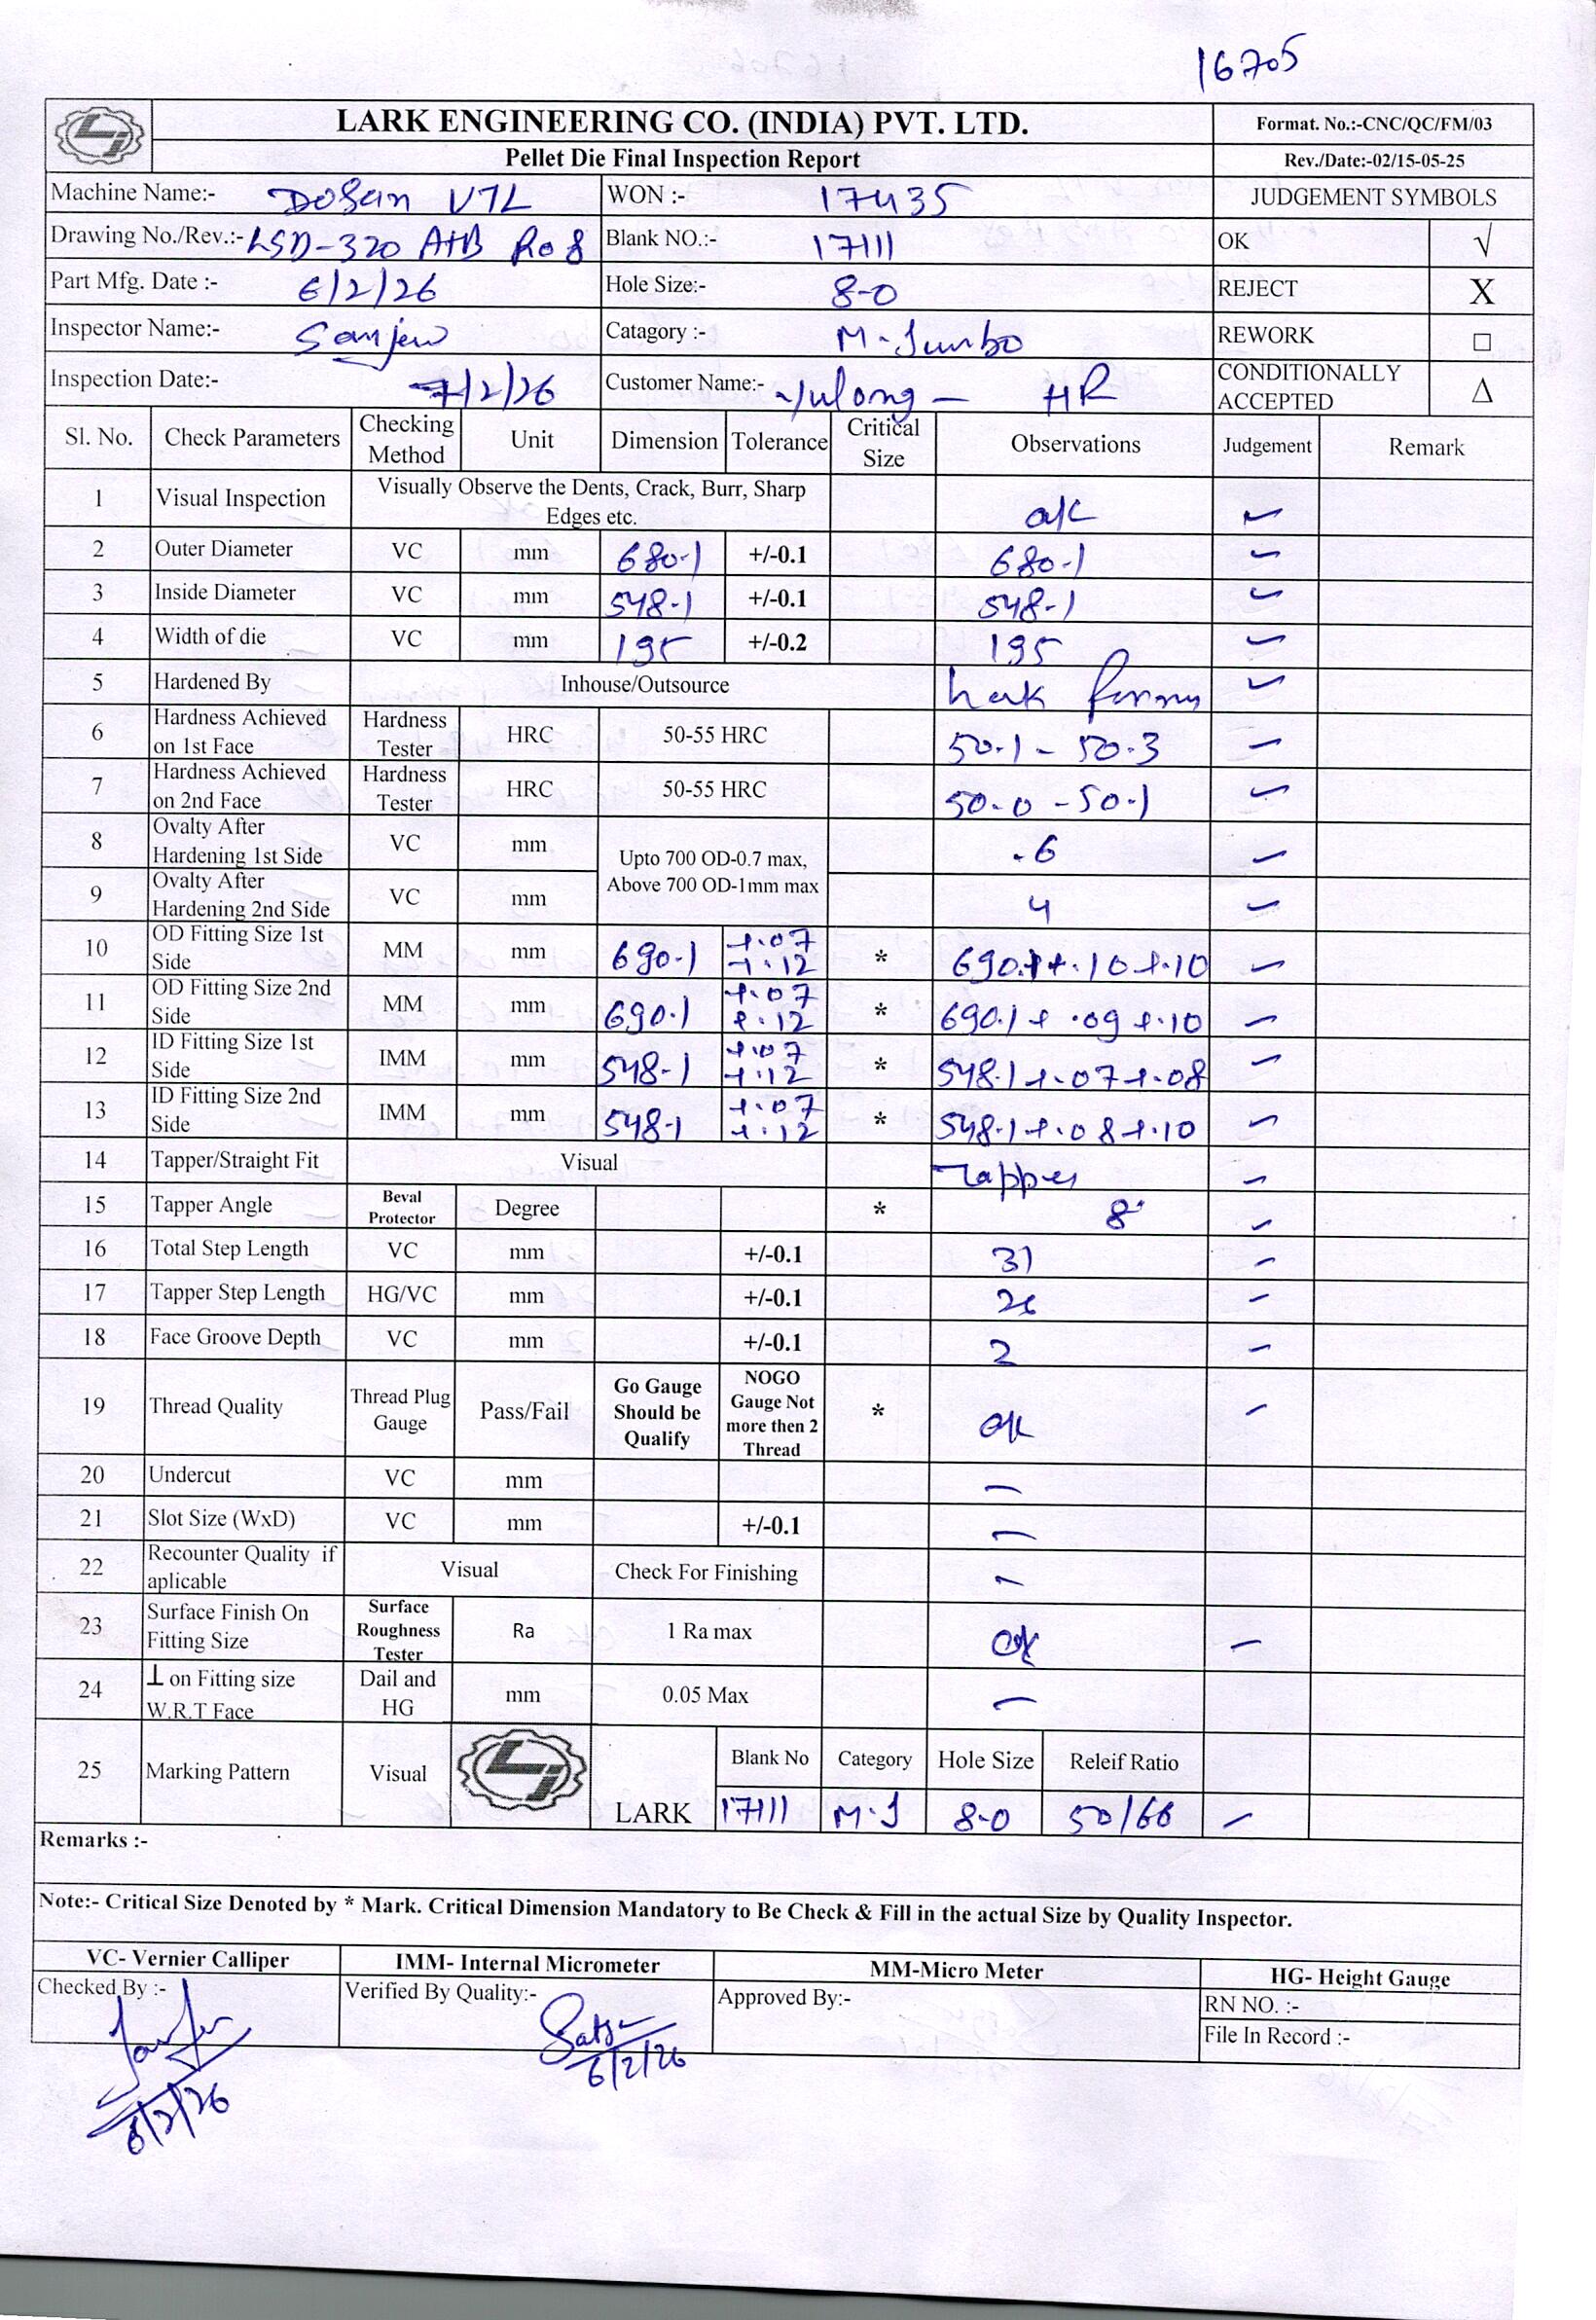 16705
LARK ENGINEERING CO. (INDIA) PVT. LTD.
Format. No.:-CNC/QC/FM/03
Pellet Die Final Inspection Report
Rev./Date:-02/15-05-25
Machine Name:- Dosan VTL WON :- 17435 JUDGEMENT SYMBOLS
Drawing No./Rev.:- LSD-320 A+B R08 Blank NO.:- 17111 OK √
Part Mfg. Date :- 6/2/26 Hole Size:- 8-0 REJECT X
Inspector Name:- Sanjeev Catagory :- M-Jumbo REWORK □
Inspection Date:- 7/2/26 Customer Name:- Yulong - HR CONDITIONALLY ACCEPTED Δ
Sl. No. Check Parameters Checking Method Unit Dimension Tolerance Critical Size Observations Judgement Remark
1 Visual Inspection Visually Observe the Dents, Crack, Burr, Sharp Edges etc. ok ✓
2 Outer Diameter VC mm 680.1 +/-0.1 680.1 ✓
3 Inside Diameter VC mm 548.1 +/-0.1 548.1 ✓
4 Width of die VC mm 195 +/-0.2 195 ✓
5 Hardened By Inhouse/Outsource ✓
6 Hardness Achieved on 1st Face Hardness Tester HRC 50-55 HRC 50.1 - 50.3 ✓
7 Hardness Achieved on 2nd Face Hardness Tester HRC 50-55 HRC 50.0 - 50.1 ✓
8 Ovalty After Hardening 1st Side VC mm Upto 700 OD-0.7 max, Above 700 OD-1mm max .6 ✓
9 Ovalty After Hardening 2nd Side VC mm 4 ✓
10 OD Fitting Size 1st Side MM mm 690.1 +.07 +.12 * 690.1+.10+.10 ✓
11 OD Fitting Size 2nd Side MM mm 690.1 +.07 +.12 * 690.1+.09+.10 ✓
12 ID Fitting Size 1st Side IMM mm 548.1 +.07 +.12 * 548.1+.07+.08 ✓
13 ID Fitting Size 2nd Side IMM mm 548.1 +.07 +.12 * 548.1+.08+.10 ✓
14 Tapper/Straight Fit Visual Tapper ✓
15 Tapper Angle Beval Protector Degree * 8° ✓
16 Total Step Length VC mm +/-0.1 31 ✓
17 Tapper Step Length HG/VC mm +/-0.1 26 ✓
18 Face Groove Depth VC mm +/-0.1 2 ✓
19 Thread Quality Thread Plug Gauge Pass/Fail Go Gauge Should be Qualify NOGO Gauge Not more then 2 Thread * ok ✓
20 Undercut VC mm -
21 Slot Size (WxD) VC mm +/-0.1 -
22 Recounter Quality if aplicable Visual Check For Finishing -
23 Surface Finish On Fitting Size Surface Roughness Tester Ra 1 Ra max ok ✓
24 ⊥ on Fitting size W.R.T Face Dail and HG mm 0.05 Max -
25 Marking Pattern Visual LARK Blank No Category Hole Size Releif Ratio
17111 M.J 8-0 50/66 ✓
Remarks :-
Note:- Critical Size Denoted by * Mark. Critical Dimension Mandatory to Be Check & Fill in the actual Size by Quality Inspector.
VC- Vernier Calliper IMM- Internal Micrometer MM-Micro Meter HG- Height Gauge
Checked By :- Verified By Quality:- Approved By:- RN NO. :-
File In Record :-
6/2/26
6/2/26